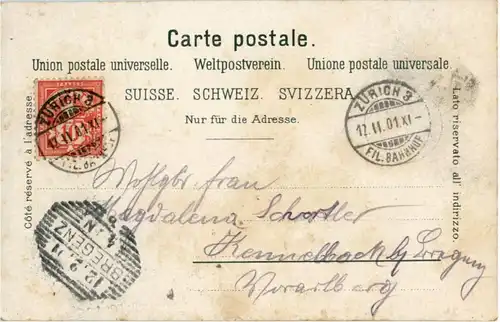 Carte postale.
Union postale universelle. Weltpostverein. Unione postale universale.
SUISSE. SCHWEIZ. SVIZZERA.
Nur für die Adresse.
Côté réservé à l'adresse.
Lato riservato all' indirizzo.
ZÜRICH 3
ZÜRICH 3
12.II.01.XI-
FIL. BAHNHOF
BREGENZ
Wohlgbr. frau
Magdalena
Kennelbach b/ Bregenz
Vorarlberg